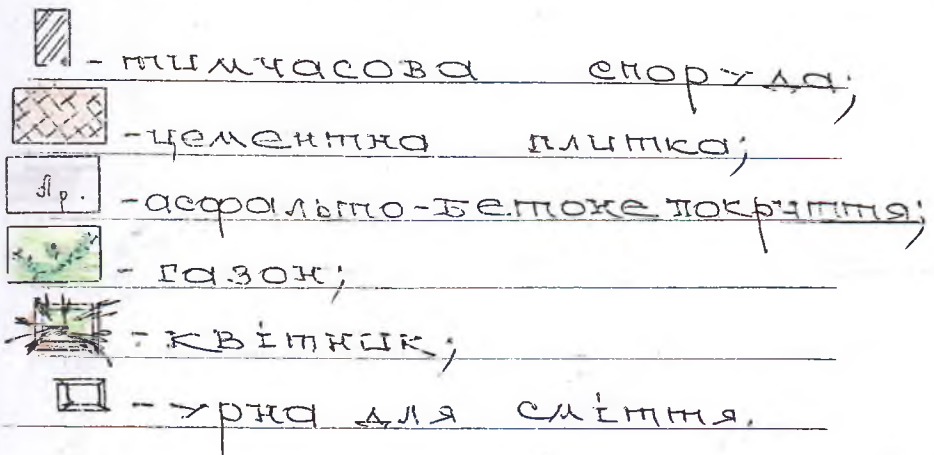 - тимчасова споруда;
- цементна плитка;
Ар. - асфальто-бетоне покриття;
- газон;
- квітник;
- урна для сміття.